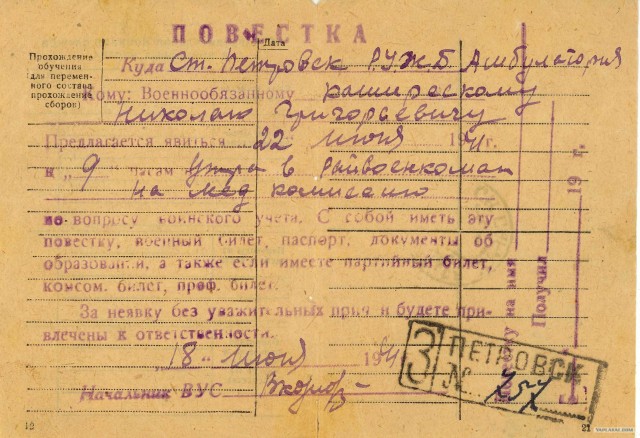 ПОВЕСТКА
Дата
Прохождение
обучения
(для перемен-
ного состава
прохождения
сборов)
Куда Ст. Петровск РУЖД Амбулатория
Кому: Военнообязанному
Николаю Григорьевичу
Предлагается явиться 22 июня 1941
к „9" часам утра в Райвоенкомат
на мед комиссию
по вопросу воинского учета. С собой иметь эту
повестку, военный билет, паспорт, документы об
образовании, а также если имеете партийный билет,
комсом. билет, проф. билет.
За неявку без уважительных причин будете при-
влечены к ответственности.
„18" июня 1941
Начальник ВУС
З ПЕТРОВСК
№
Повестку на имя
Получил
19 г.
12
21